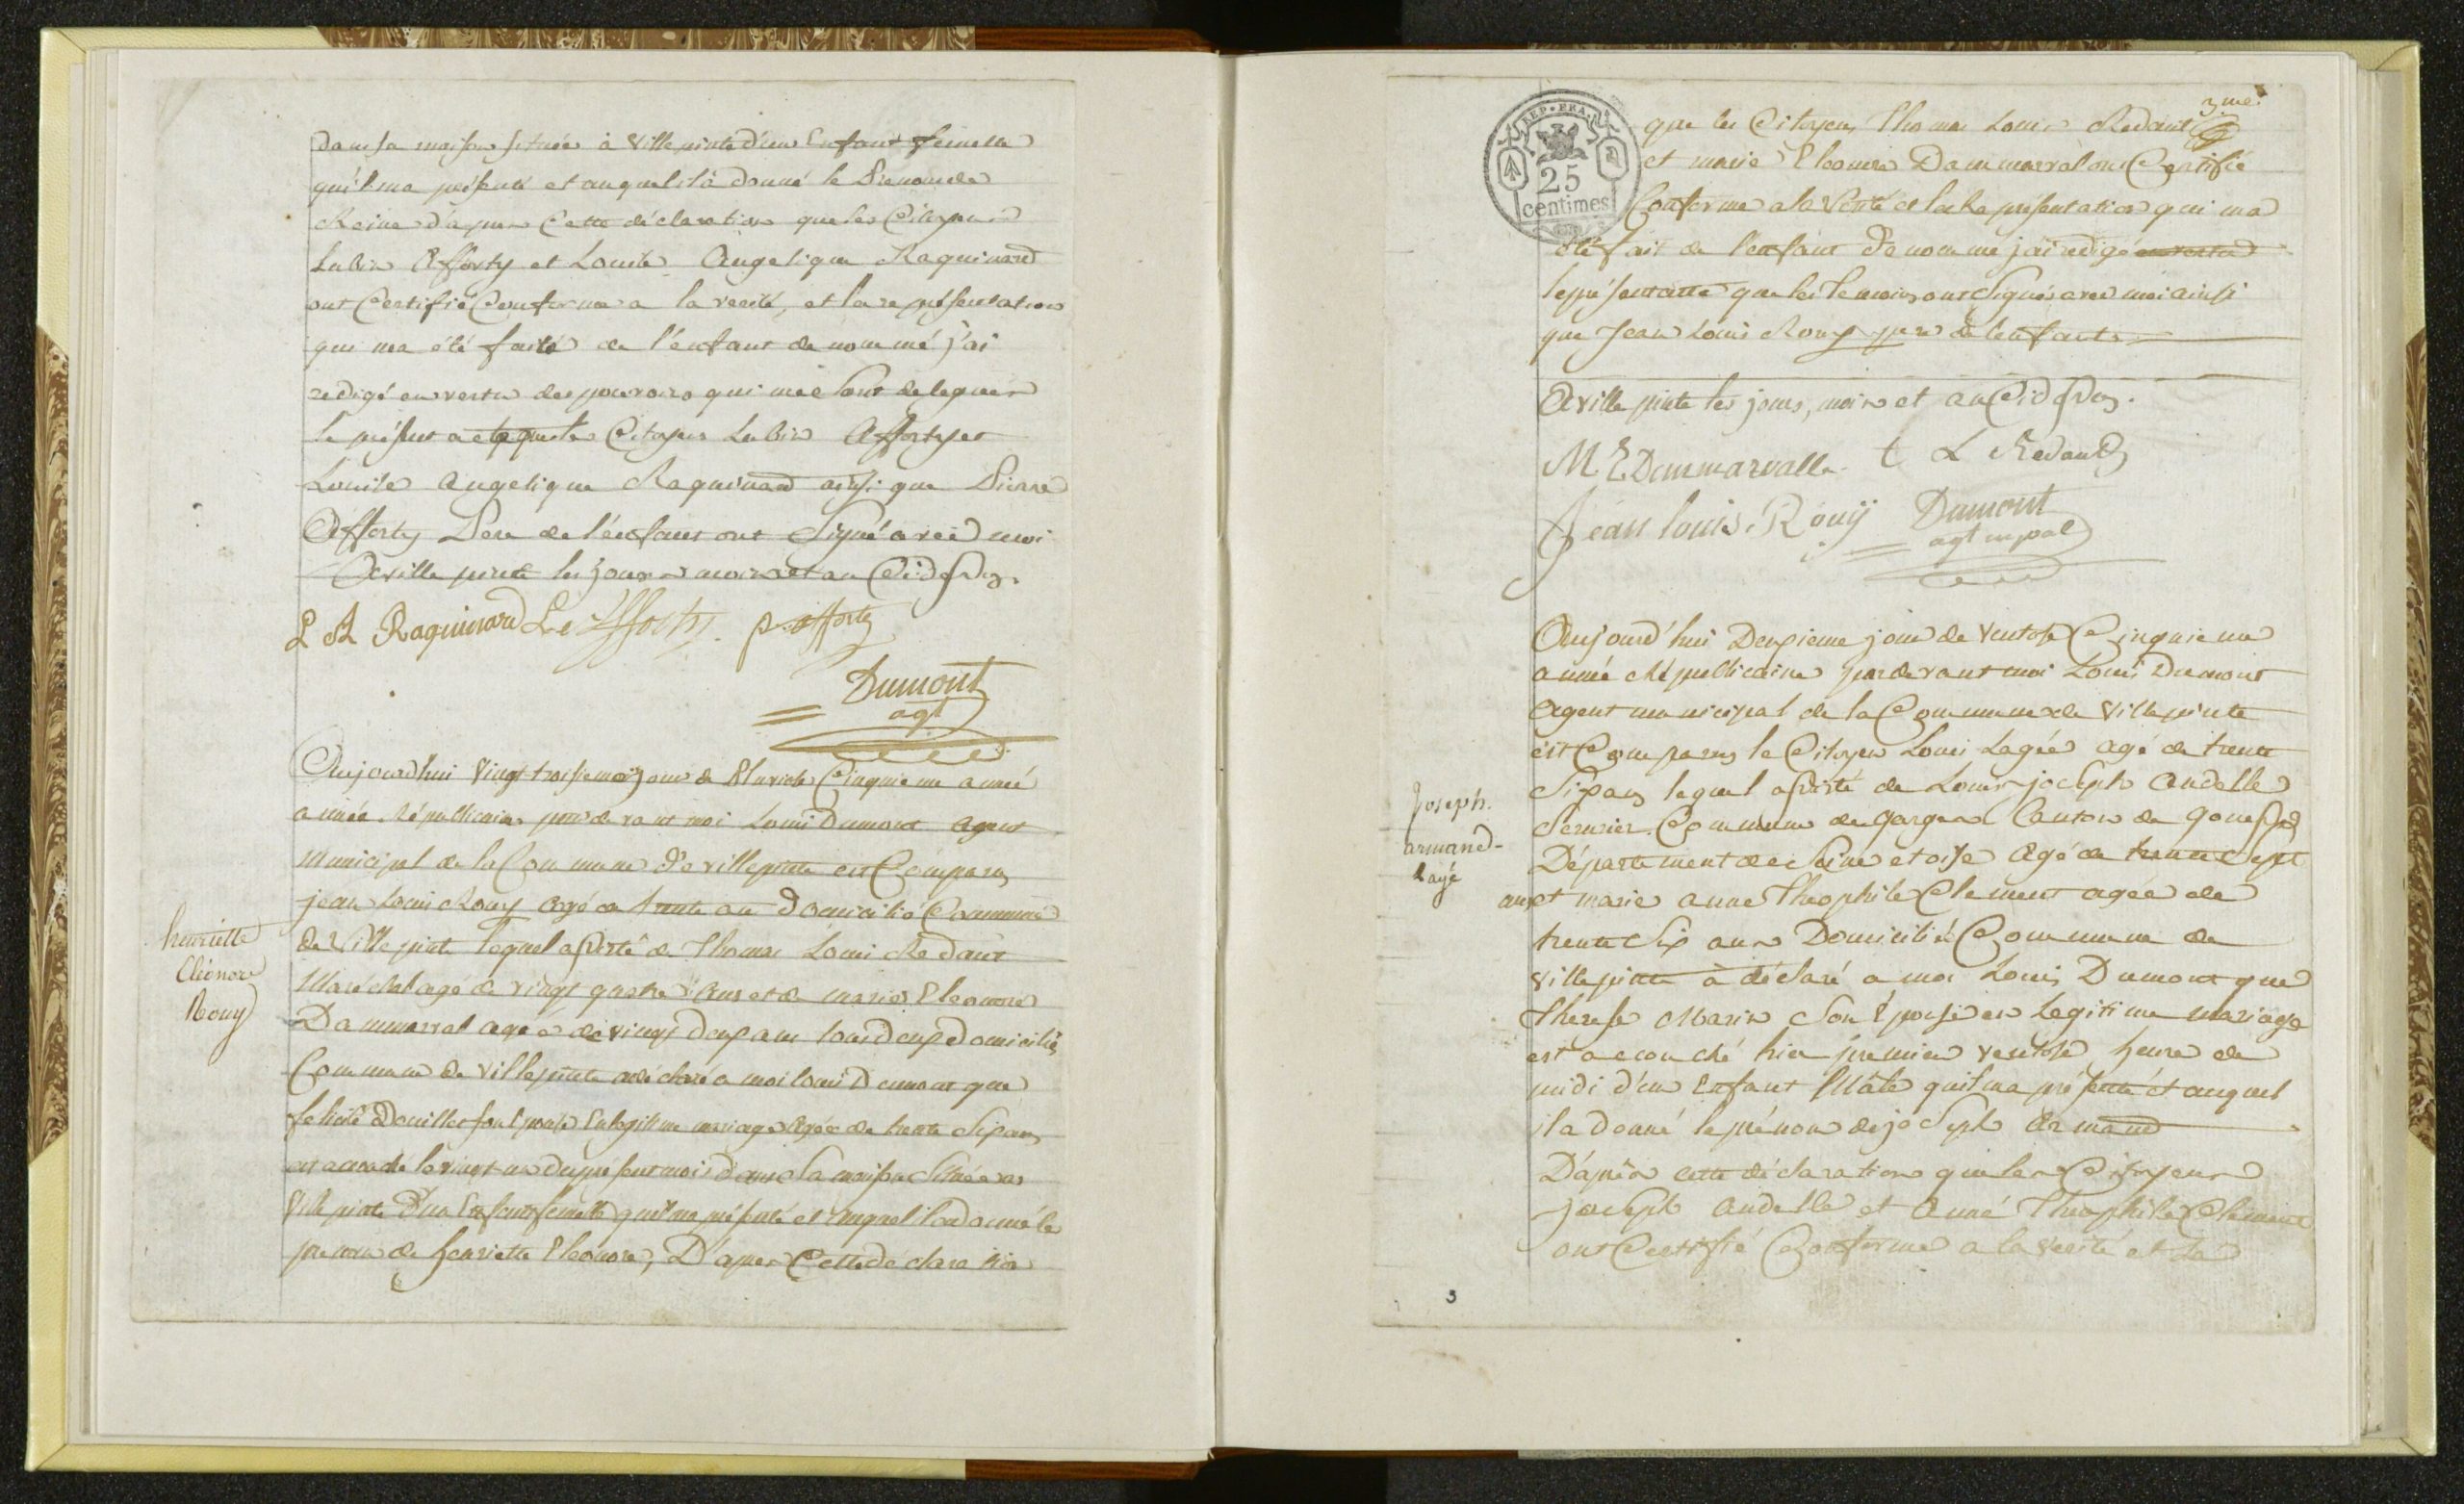 dans sa maison située à Villepinte d'un Enfant femelle
qu'il ma présenté et auquel il à donné le Prenom de
Reine d'après Cette déclaration que les Citoyens
Lubin Afforty et Louise Angelique Raquinard
ont Certifié Conforme a la verité, et la représentation
qui ma été faite de l'enfant denommé j'ai
redigé en vertu des pouvoirs qui me sont delegués
le présent acte que les Citoyens Lubin Afforty et
Louise Angelique Raquinard ainsi que Pierre
Afforty Pere de l'enfant ont Signé avec moi
A ville pinte les jours mois et an Cidessus.
L A Raquinard L Afforty. p. afforty
Dumont
agt
Aujourdhui Vingt troisieme jour de Pluviose Cinquieme année
année Républicaine pardevant moi Louis Dumont agent
Municipal de la Commune De villepinte est Comparu
jean Louis Rouy agé de trente an Domicilié Commune
de Villepinte lequel assisté de Thomas Louis Redaut
Maréchal agé de vingt quatre ans et de marie Eleonore
Dammarval agée de vingt deux ans tous deux domiciliés
Commune de Villepinte a déclaré a moi Louis Dumont que
felicité Douillet son Epouse En legitime mariage agée de trente Six ans
est accouché le vingt-un du présent mois dans sa maison Située a
Ville pinte D'un Enfant femelle qu'il ma présenté et auquel il a donné le
prenom de henriette Eleonore, D'après Cette déclaration
henriette
Eléonore
Rouy
3me.
REP. FRA.
25
centimes
que les Citoyens Thomas Louis Redaut
et marie Eleonore Dammarval ont Certifié
Conforme a la Verité et la Représentation qui ma
été fait de l'enfant Denommé j'ai redigé en vertu
le présent acte que les temoins ont Signés avec moi ainsi
que Jean Louis Rouy pere de l'enfant
A ville pinte les jours, mois et an Cidessus.
M E Dammarvalle t L Redaut
Jean louis Rouy Dumont
agt mpal
Aujourd'hui Deuxieme jour de Ventose Cinquieme
année Républicaine pardevant moi Louis Dumont
Agent municipal de la Commune de Ville pinte
est Comparu le Citoyen Louis Lagée agé de trente
Six ans lequel assisté de Louis joseph Audelle
Serurier Commune de Gargan Canton de Gonesse
Département de Seine et oise Agé de trente Sept
ans et marie anne Theophile Clement agée de
trente Six ans Domicilié Commune de
Villepinte à déclaré a moi Louis Dumont que
Therese Marin Son Epouse en Legitime mariage
est accouché hier premier ventose heure de
midi d'un Enfant Mâle qu'il ma présenté et auquel
il a donné le prénom de joseph Armand
D'après cette déclaration que les Citoyens
joseph Audelle et Anne Theophile Clement
ont Certifié Conforme a la verité et la
Joseph.
armand-
Lagé
3